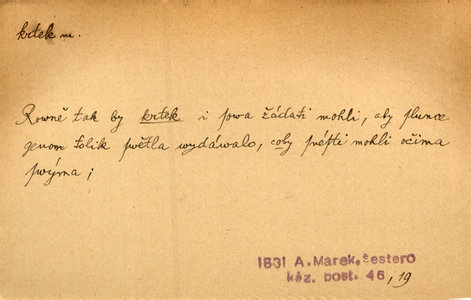 krtek m.
Rowně tak by krtek i sowa žádati mohli, aby slunce
genom tolik swětla wydáwalo, coby snésti mohli očima
swýma;
1831 A. Marek, šestero
káz. post. 46, 19